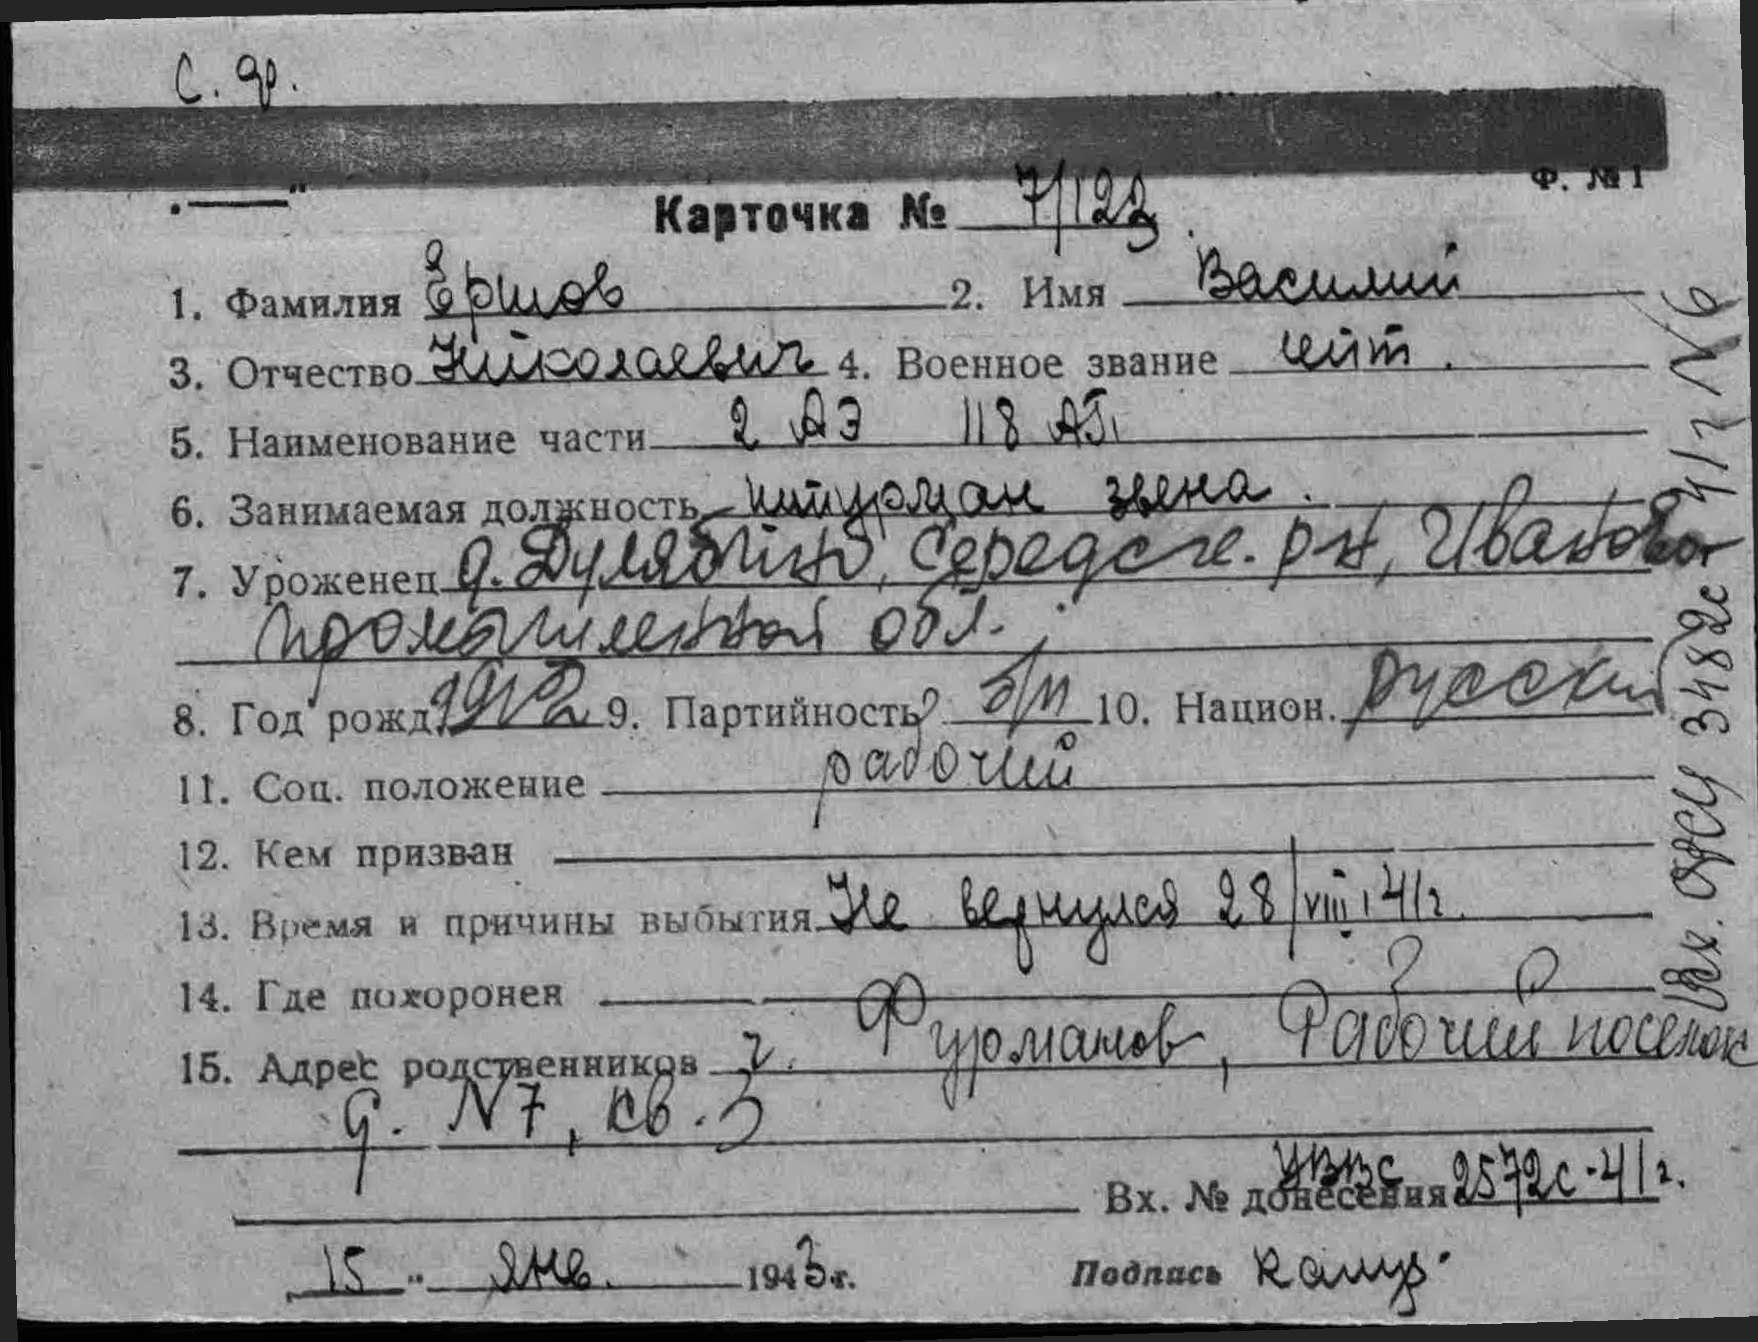 С. др.
Ф. № 1
Карточка № 7/123
1. Фамилия Ёршов 2. Имя Василий
3. Отчество Николаевич 4. Военное звание лейт.
5. Наименование части 2 АЭ 118 АП
6. Занимаемая должность штурман звена.
7. Уроженец д. Дуляпино, Середск. р-н, Ивановск
промышленной обл.
8. Год рожд. 9. Партийность б/п 10. Национ. русский
11. Соц. положение рабочий
12. Кем призван
13. Время и причины выбытия Не вернулся 28/VIII 41г.
14. Где похоронен
15. Адрес родственников г. Фурманов, Рабочий поселок
д. N7, кв. 3
УВВС
Вх. № донесения 2572с-41г.
15 " янв. 1943 г. Подпись
Вх. 3482с 41г N6